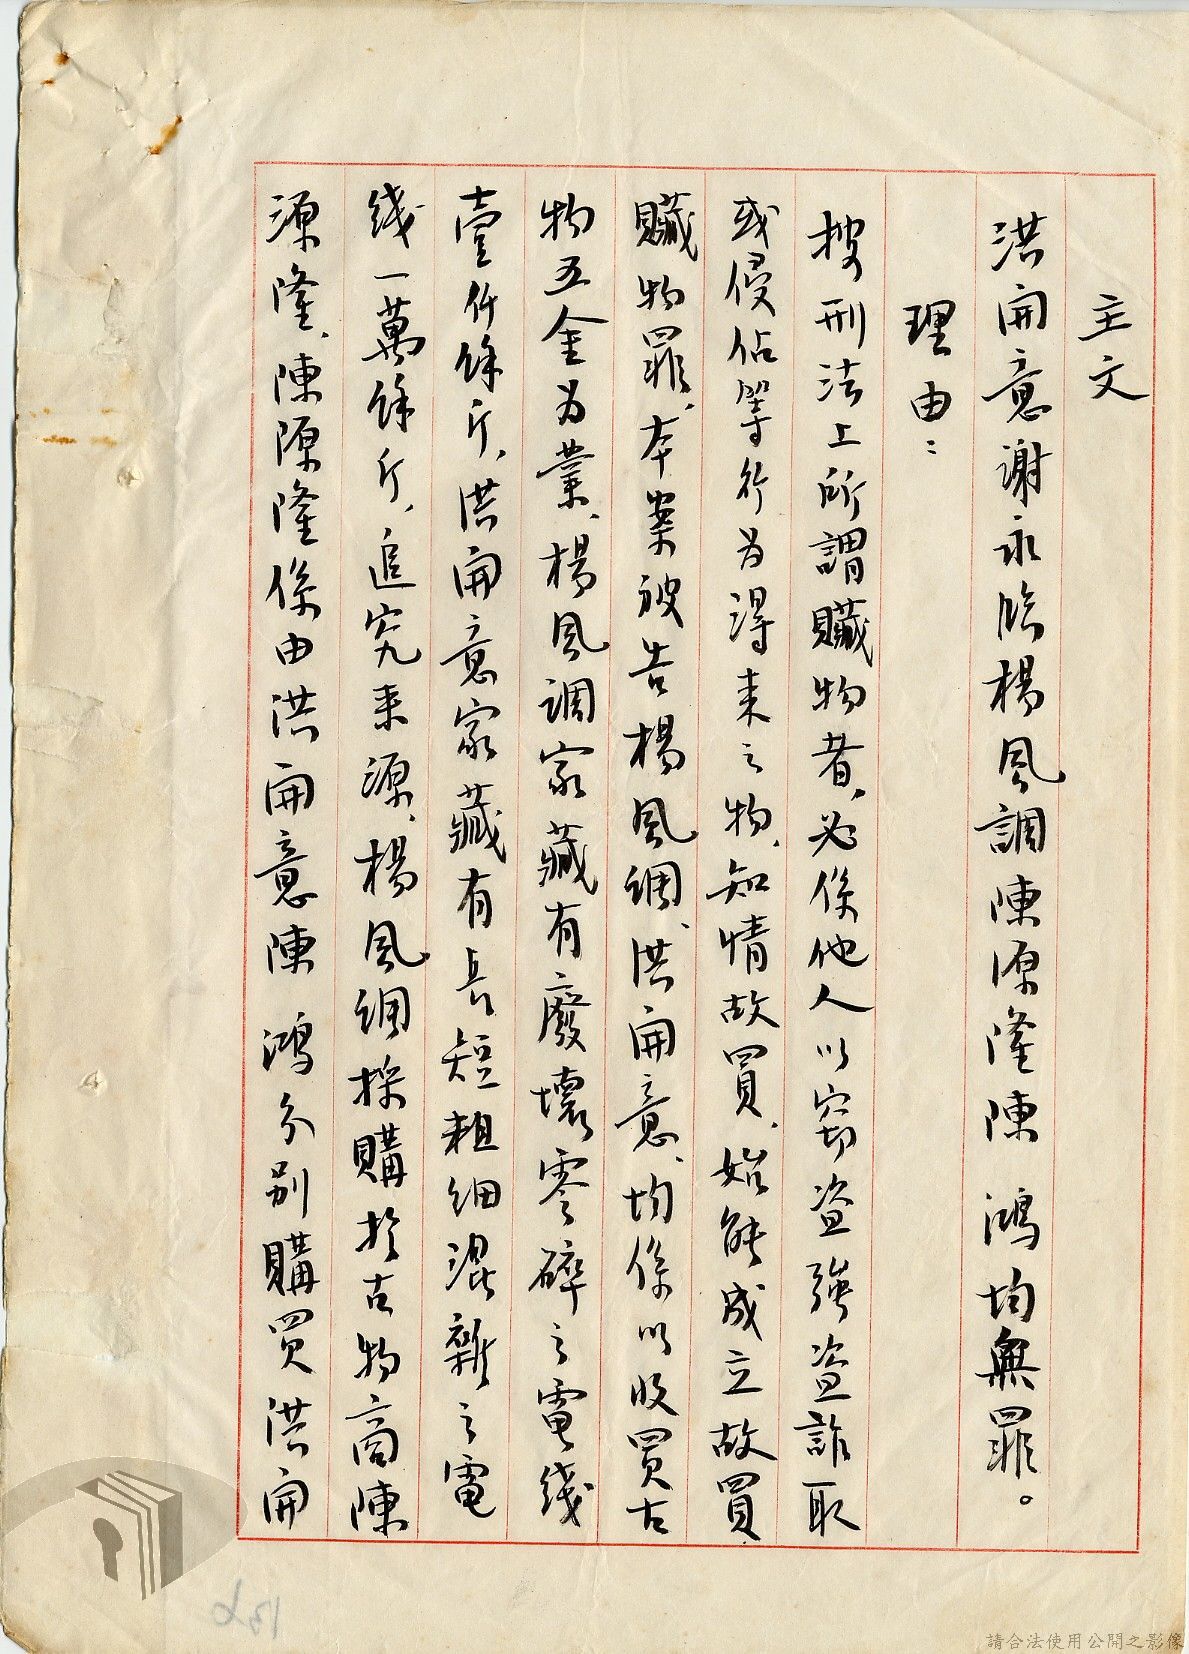 主文
洪開意謝永臨楊風調陳源隆陳 鴻均無罪。
理由：
按刑法上所謂贓物者，必係他人以竊盜強盜詐取
或侵佔等行為得來之物，知情故買，始能成立故買
贓物罪，本案被告楊風調、洪開意、均係以收買古
物五金為業，楊風調家藏有廢壞零碎之電线
壹仟餘斤，洪開意家藏有長短粗细混雜之電
线一萬餘斤，追究來源，楊風调採購於古物商陳
源隆，陳源隆係由洪開意陳 鴻分別購買洪開
136
請合法使用公開之影像